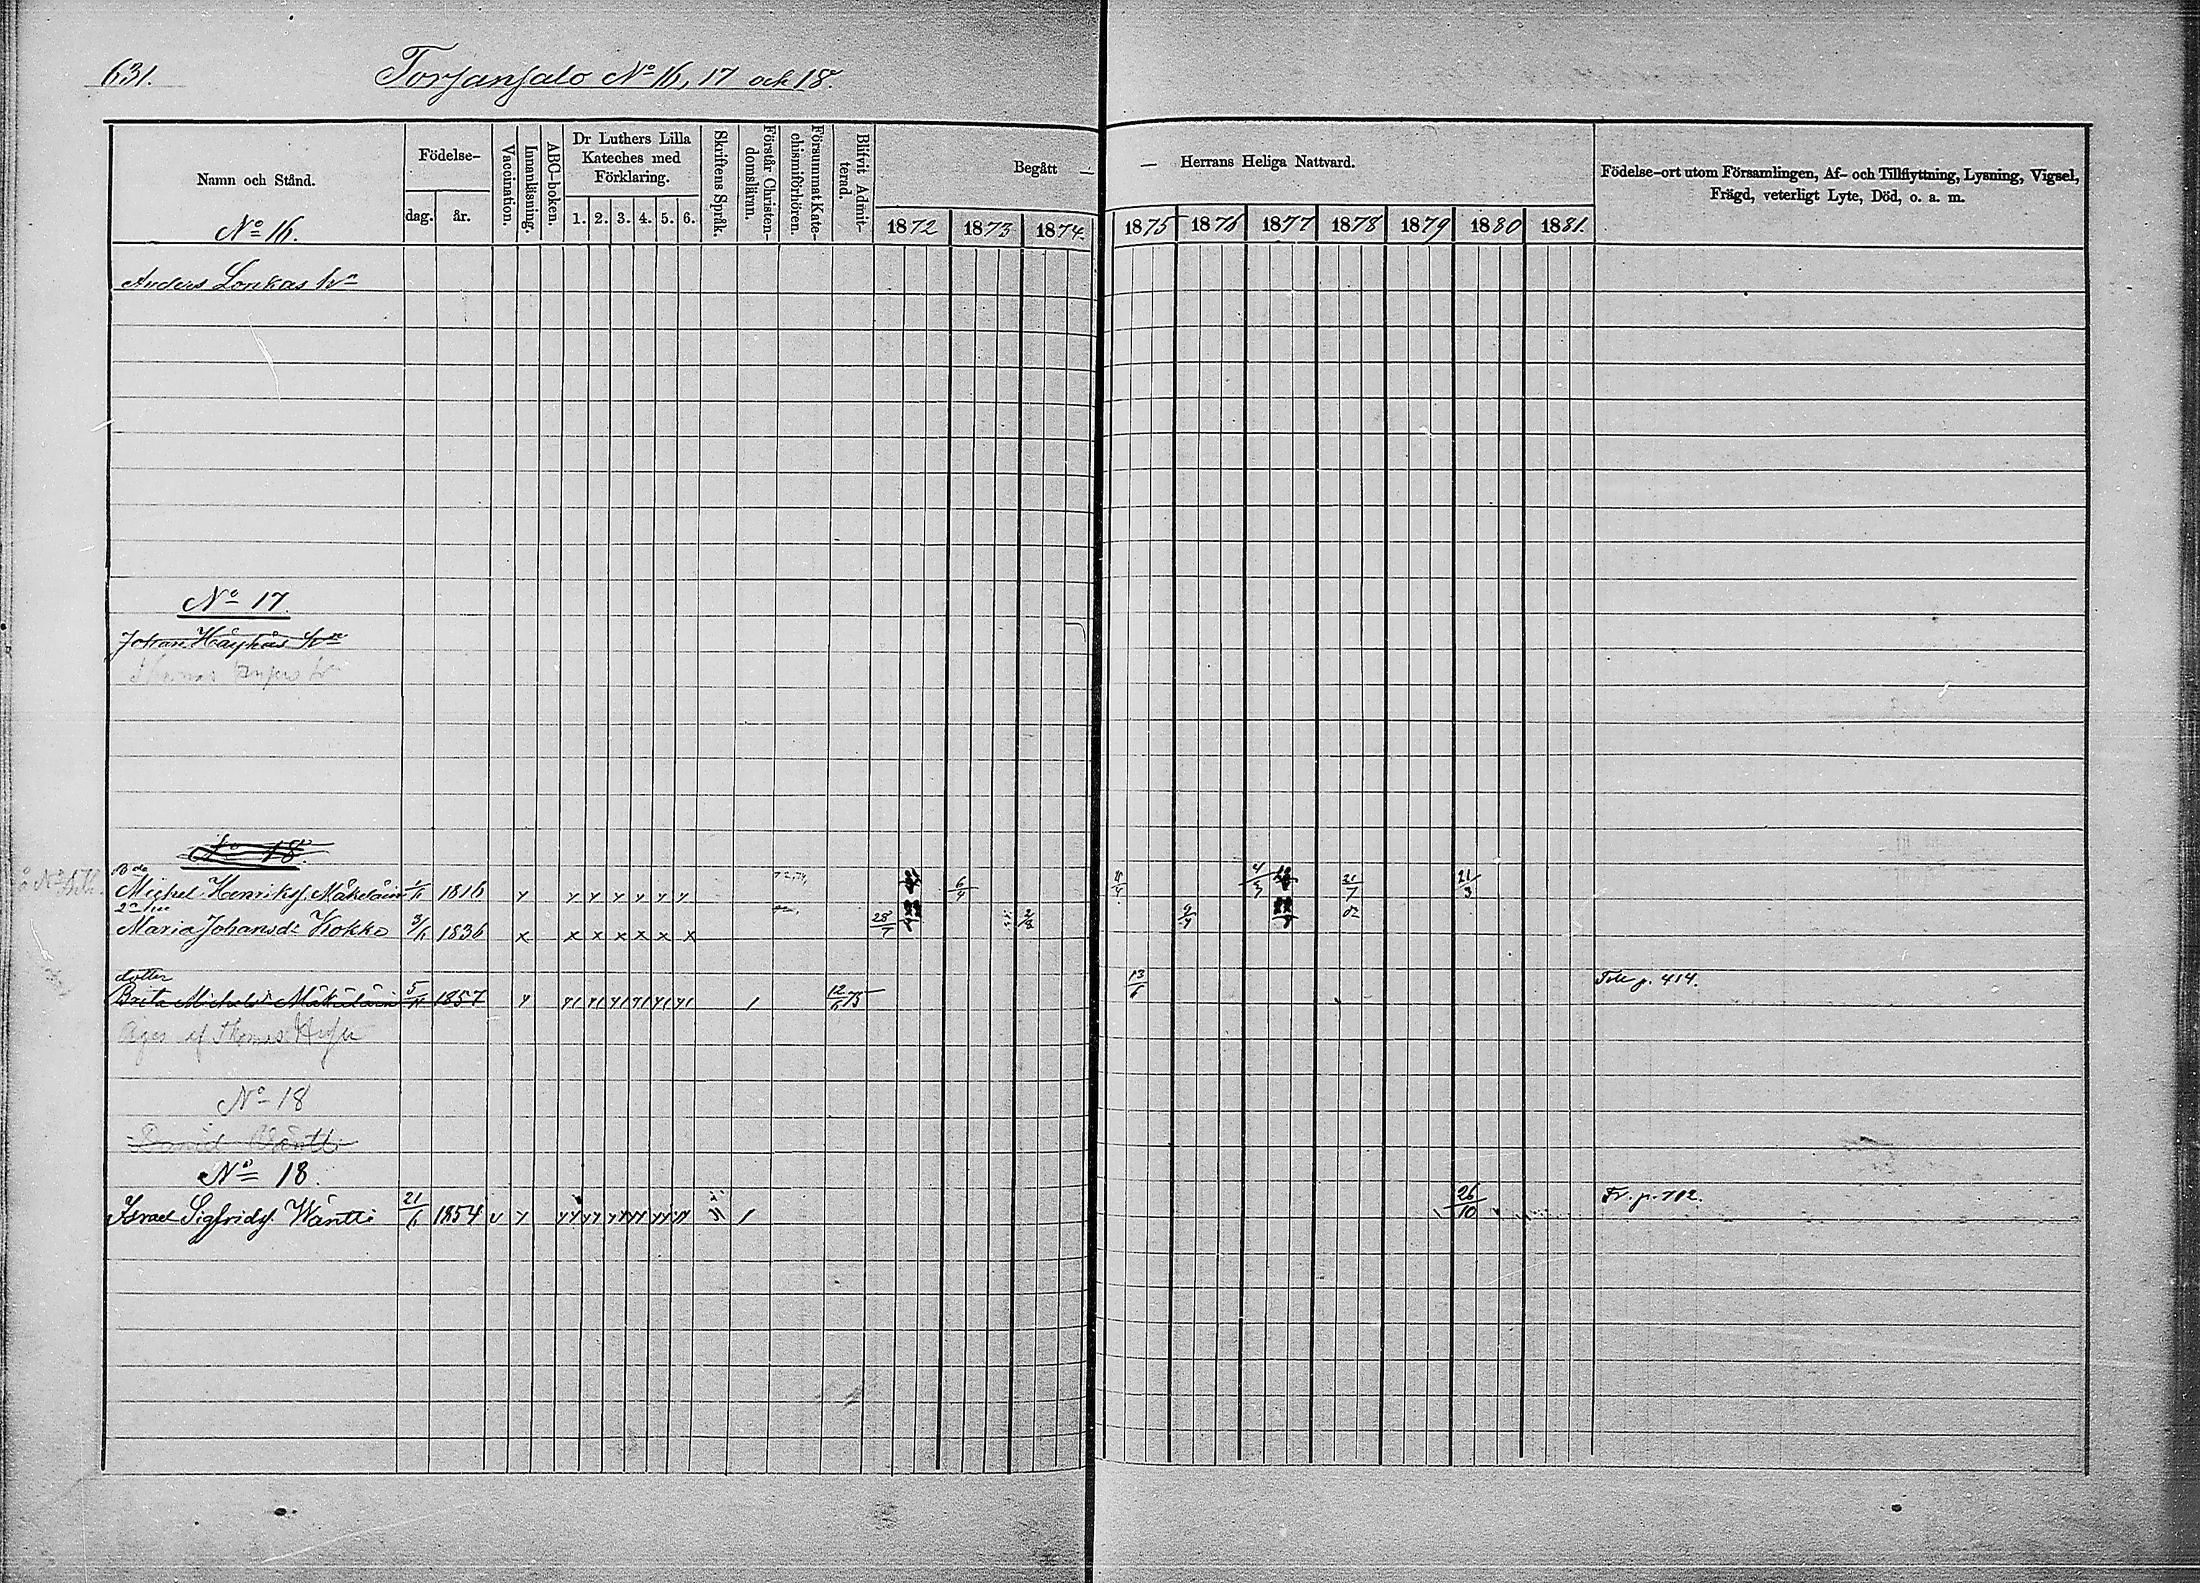 631. Torsansalo No 16, 17 och 18.
Namn och Stånd.
Födelse-
dag. år.
Vaccination.
Innanläsning.
ABC-boken.
Dr Luthers Lilla
Kateches med
Förklaring.
1. 2. 3. 4. 5. 6.
Skriftens Språk.
Förstår Christen-
domsläran.
Försummat Kate-
chismiförhören.
Blifvit Admit-
terad.
Begått —
— Herrans Heliga Nattvard.
1872 1873 1874. 1875 1876 1877 1878 1879 1880 1881.
Födelse-ort utom Församlingen, Af- och Tillflyttning, Lysning, Vigsel,
Frägd, veterligt Lyte, Död, o. a. m.
No 16.
Anders Lonkas hn
No 17.
Johan Häyhäs hn
No 18.
Michel Henrikss. Mäkeläin 1816 y y y y y y y 6/4 21/7 21/3
Maria Johansdr Kokko 3/1 1836 x x x x x x x 28/7
dotter
Brita Michelsdr Mäkeläin 5/11 1857 y y1 y1 y1 y1 y1 y1 1 12/6 75 13/6 Till p. 414.
Äges af Thomas
No 18
Daniel Wäntti
No 18.
Israel Sigfrids. Wäntti 21/6 1854 v y yy yy yy yy yy yy 1 26/10 Fr. p. 712.